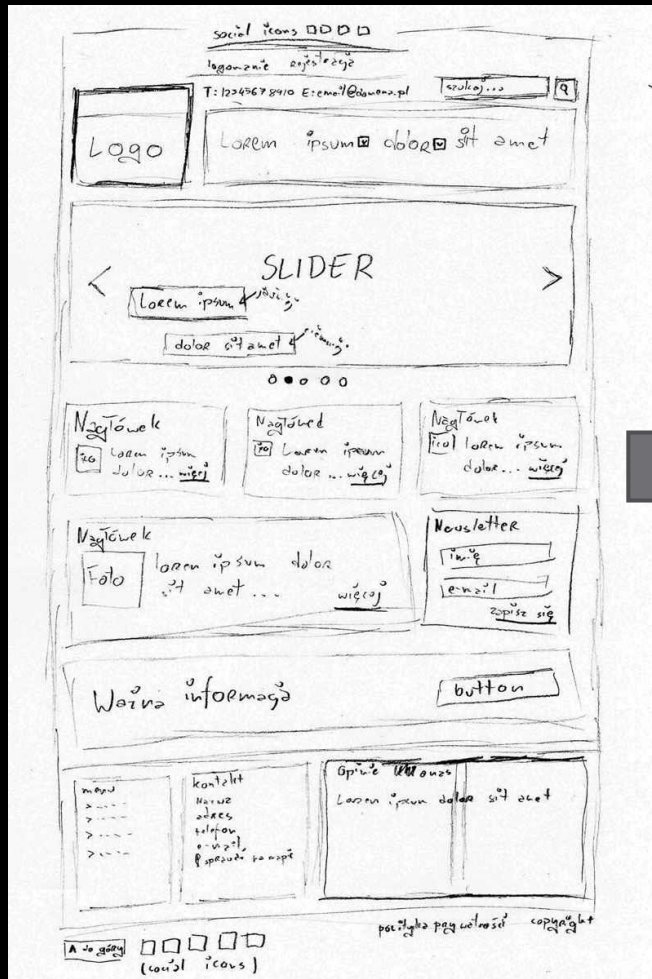 social icons
logowanie rejestracja
T: 12345678910 E: email@domena.pl
szukaj...
Logo
Lorem ipsum dolor sit amet
SLIDER
< >
Lorem ipsum
dolor sit amet
Nagłówek
ico Lorem ipsum
dolor... więcej
Nagłówed
ico Lorem ipsum
dolor... więcej
Nagłówek
ico lorem ipsum
dolor... więcej
Nagłówek
Foto
lorem ipsum dolor
sit amet... więcej
Newsletter
imię
e-mail
zapisz się
Ważna informacja
button
menu
>----
>----
>----
>----
kontakt
Nazwa
adres
telefon
e-mail
sprawdź na mapie
Opinie o nas
Lorem ipsum dolor sit amet
polityka prywatności copyright
A do góry
(social icons)